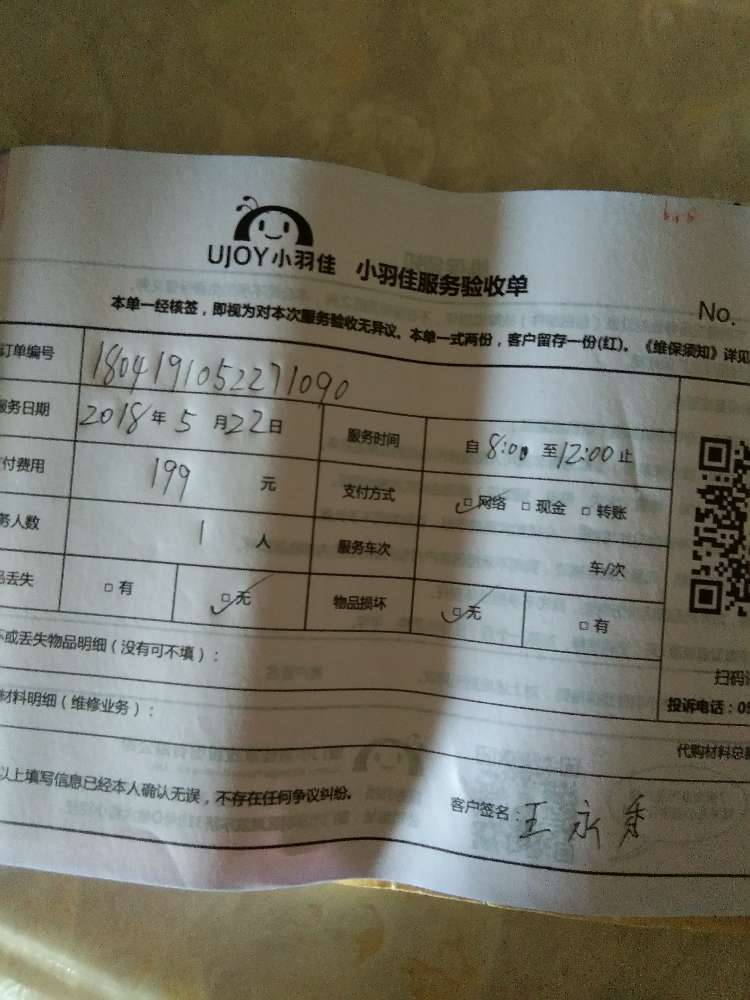 UJOY小羽佳 小羽佳服务验收单
No.
本单一经核签，即视为对本次服务验收无异议。本单一式两份，客户留存一份(红)。《维保须知》详见
订单编号 1804191052271090
服务日期 2018年5月22日 服务时间 自8:00至12:00止
付费用 199 元 支付方式 网络 现金 转账
务人数 1 人 服务车次 车/次
品丢失 有 无 物品损坏 无 有
坏或丢失物品明细（没有可不填）：
扫码
材料明细（维修业务）：
投诉电话：05
代购材料总
以上填写信息已经本人确认无误，不存在任何争议纠纷。 客户签名：王永秀